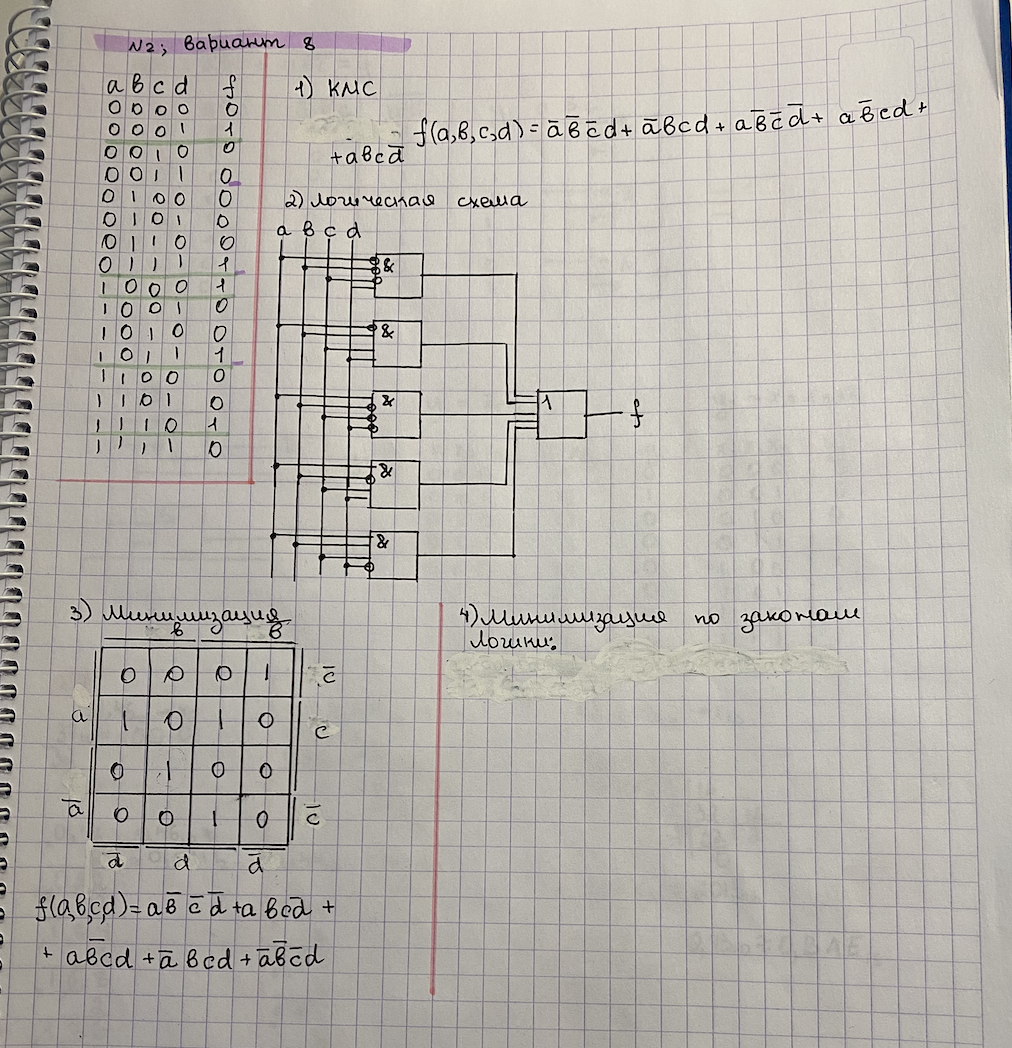 N2; Вариант 8
a b c d f
0 0 0 0 0
0 0 0 1 1
0 0 1 0 0
0 0 1 1 0
0 1 0 0 0
0 1 0 1 0
0 1 1 0 0
0 1 1 1 1
1 0 0 0 1
1 0 0 1 0
1 0 1 0 0
1 0 1 1 1
1 1 0 0 0
1 1 0 1 0
1 1 1 0 1
1 1 1 1 0
1) КМС
f(a,b,c,d) = a̅ b̅ c̅ d + a̅ b c d + a b̅ c̅ d̅ + a b̅ c d +
+ a b c d̅
2) Логическая схема
a b c d
&
&
&
&
&
1
f
3) Минимизация
b b̅
0 0 0 1 c̅
a 1 0 1 0 c
0 1 0 0
a̅ 0 0 1 0 c̅
d̅ d d̅
f(a,b,c,d) = a b̅ c̅ d̅ + a b c d̅ +
+ a b̅ c d + a̅ b c d + a̅ b̅ c̅ d
4) Минимизация по законам
логики: